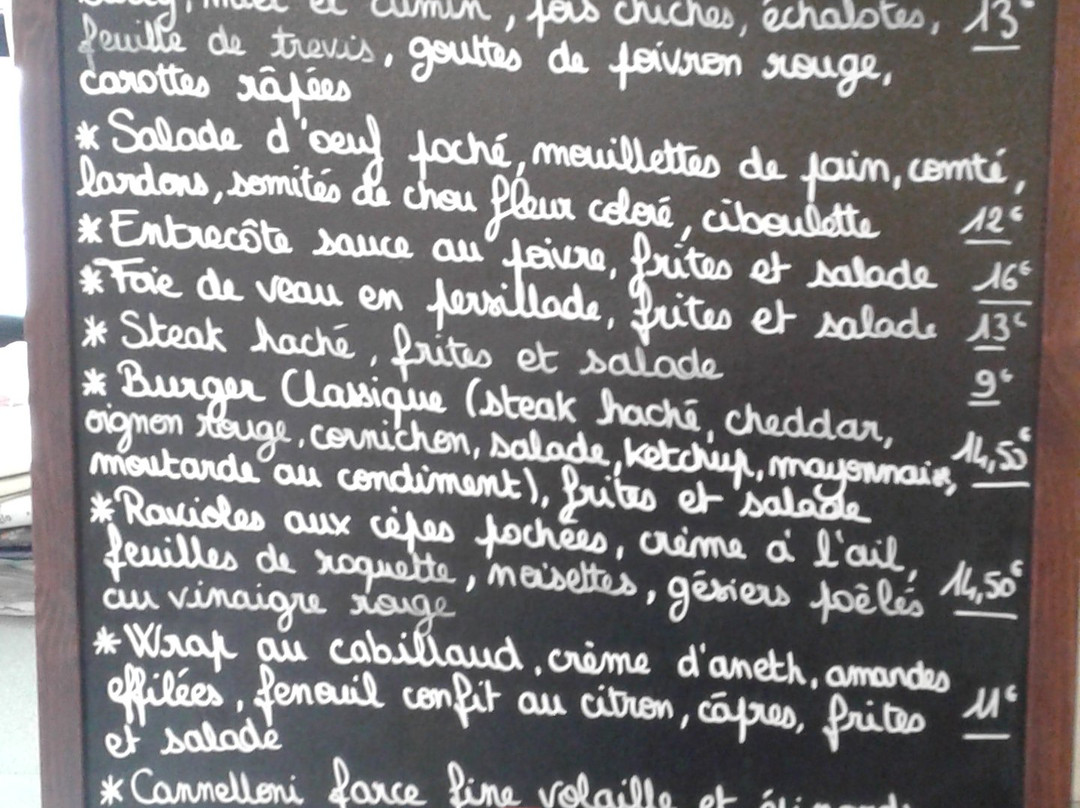 miel et cumin, pois chiches, échalotes, 13€
feuille de trevis, gouttes de poivron rouge,
carottes râpées
* Salade d'oeuf poché, mouillettes de pain, comté,
lardons, somités de chou fleur coloré, ciboulette 12€
* Entrecôte sauce au poivre, frites et salade 16€
* Foie de veau en persillade, frites et salade 13€
* Steak haché, frites et salade 9€
* Burger Classique (steak haché, cheddar,
oignon rouge, cornichon, salade, ketchup, mayonnaise, 14,50€
moutarde au condiment), frites et salade
* Ravioles aux cèpes pochées, crème à l'ail,
feuilles de roquette, noisettes, gésiers poêlés 14,50€
au vinaigre rouge
* Wrap au cabillaud, crème d'aneth, amandes
effilées, fenouil confit au citron, câpres, frites 11€
et salade
* Cannelloni farce fine volaille et